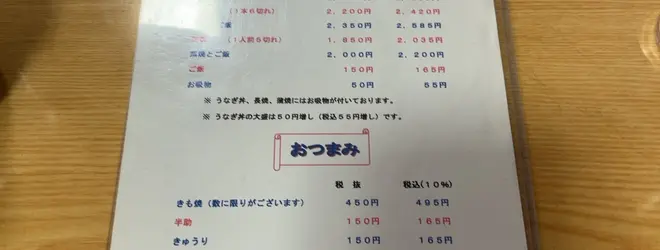 (1本6切れ) 2,200円 2,420円
2,350円 2,585円
(1人前5切れ) 1,850円 2,035円
2,000円 2,200円
ご飯 150円 165円
お吸物 50円 55円
※ うなぎ丼、長焼、蒲焼にはお吸物が付いております。
※ うなぎ丼の大盛は50円増し(税込55円増し)です。
おつまみ
税 抜 税込(10%)
きも焼(数に限りがございます) 450円 495円
半助 150円 165円
きゅうり 150円 165円